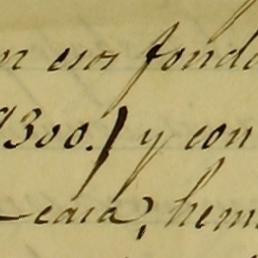 n esos fondo
9300.) y con
ecaia, hem